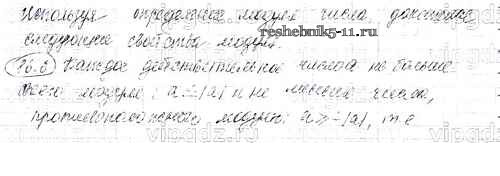 Используя определение модуля числа докажите
следующие свойства модуля.
reshebnik5-11.ru
16.6 Каждое действительное число a не больше
своего модуля: a ≤ |a| и не меньше числа,
противоположного модулю: a ≥ -|a|, т.е
vipgdz.ru